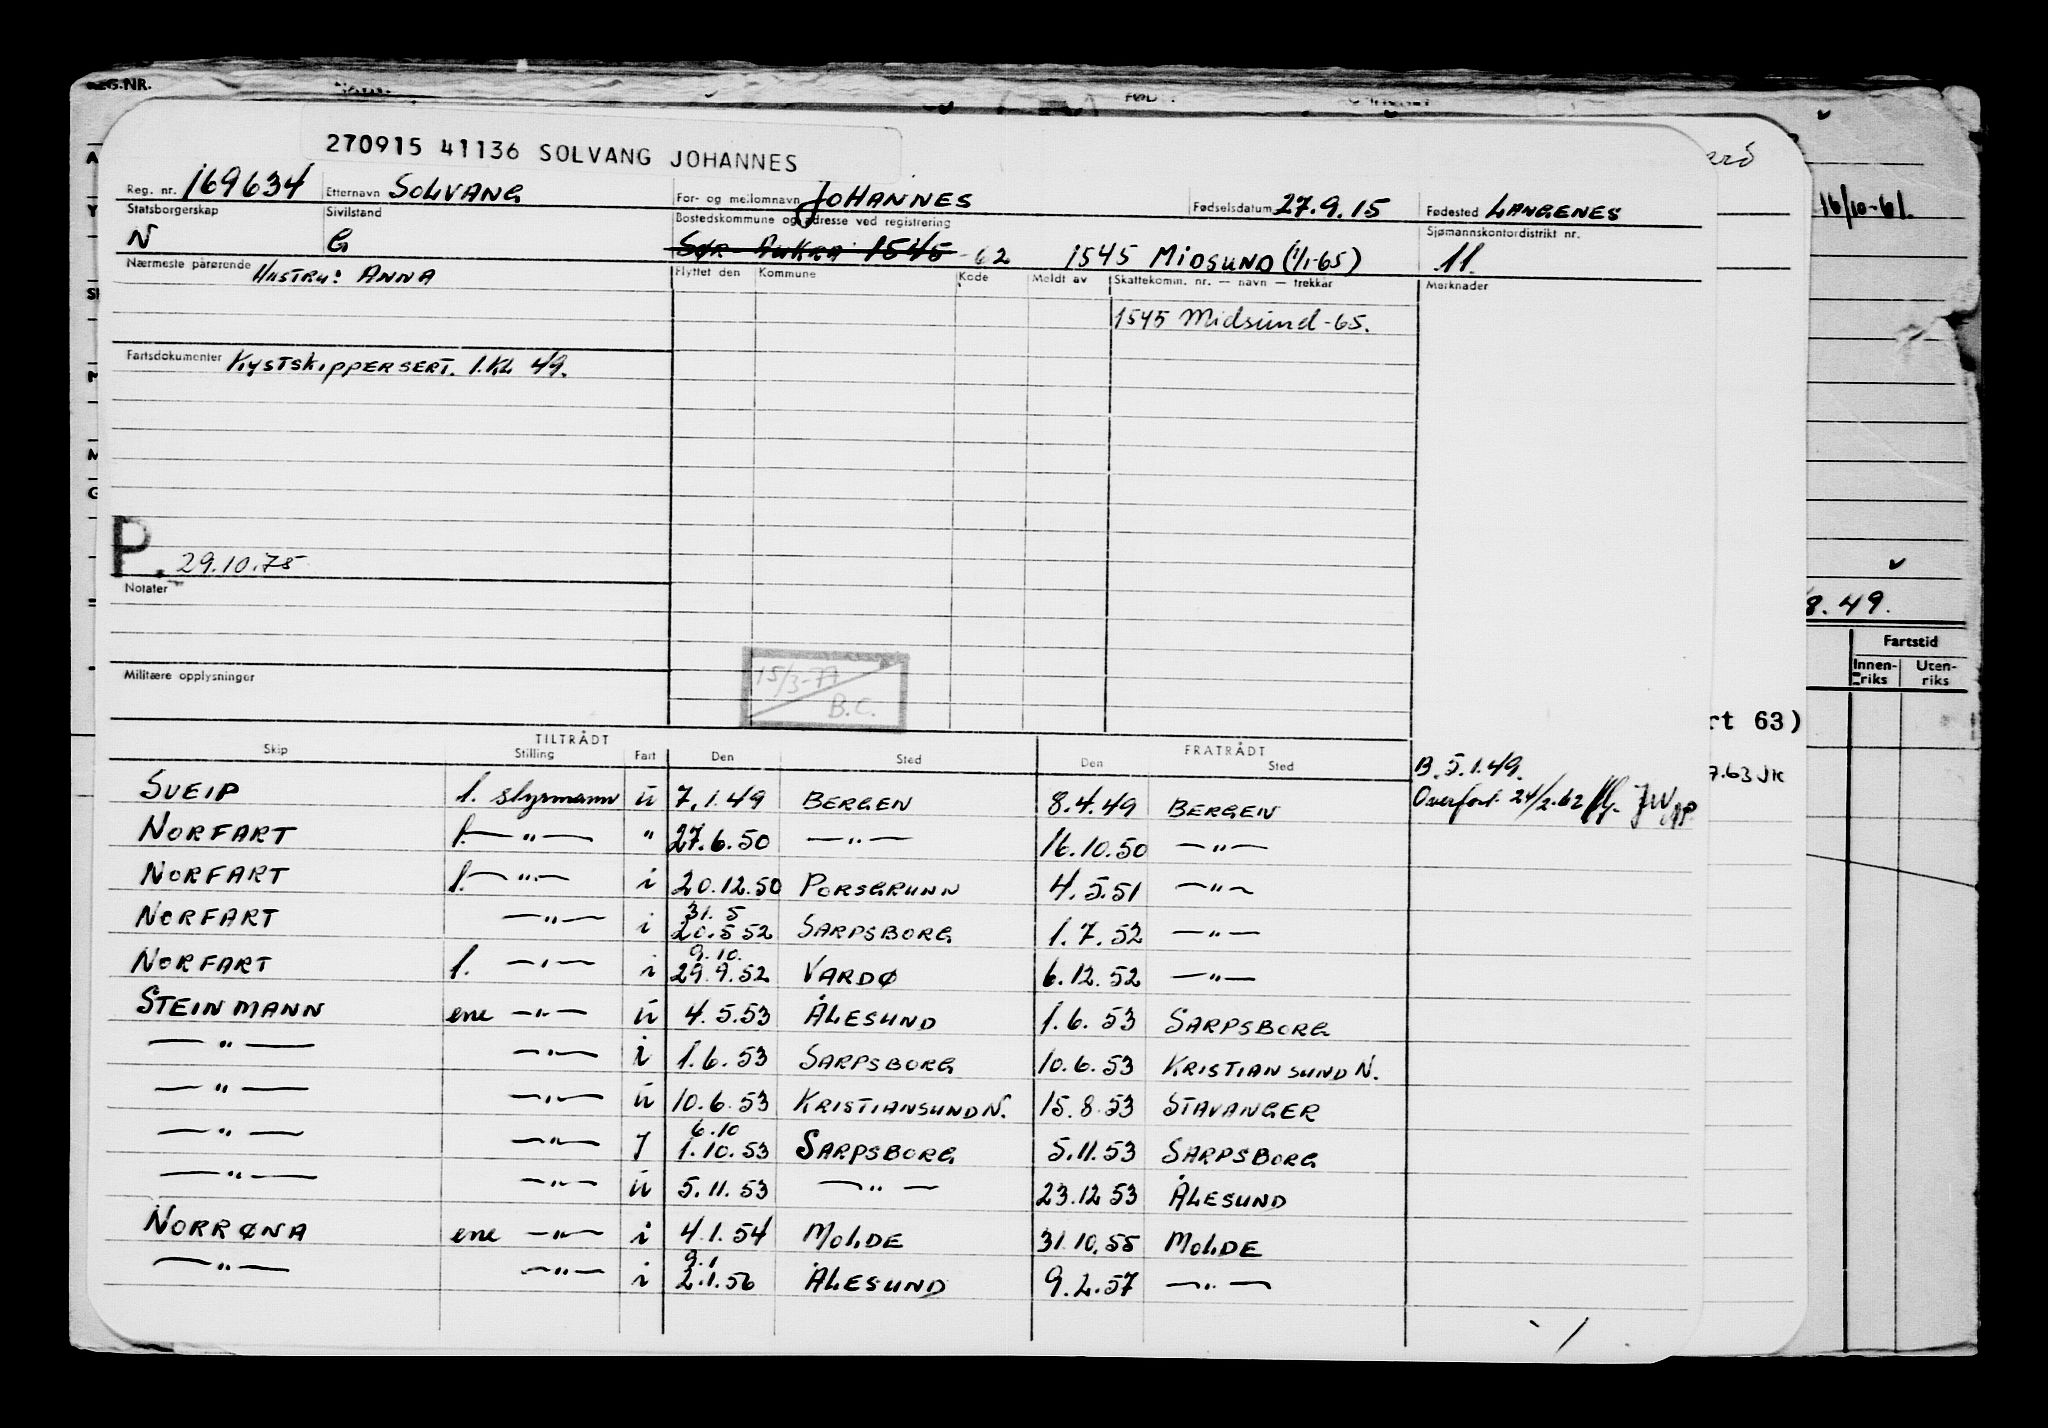 REG.NR.
270915 41136 SOLVANG JOHANNES
Reg. nr. 169634 Etternavn SOLVANG For- og mellomnavn JOHANNES Fødselsdatum 27.9.15 Fødested LANGENES
Statsborgerskap Sivilstand Bostedskommune og adresse ved registrering Sjømannskontordistrikt nr.
N G Sør-Aukra 1545 -62 1545 MIDSUND (1/1-65) 11.
16/10-61.
Nærmeste pårørende HUSTRU: ANNA Flyttet den Kommune Kode Meldt av Skattekomm. nr. — navn — trekkår Merknader
1545 Midsund-65.
Fartsdokumenter KYSTSKIPPERSERT. 1.KL 49.
P. 29.10.75
Notater
8.49.
Fartstid
Innen-riks Uten-riks
15/3-77
B.C.
Militære opplysninger
rt 63)
TILTRÅDT FRATRÅDT
Skip Stilling Fart Den Sted Den Sted
B. 5.1.49.
7.63 JK
Overført 24/2-62
SVEIP 1. styrmann u 7.1.49 BERGEN 8.4.49 BERGEN
NORFART 1. —"— " 27.6.50 —"— 16.10.50 —"—
NORFART 1. —"— i 20.12.50 PORSGRUNN 4.5.51 —"—
31.5
NORFART —"— i 20.5 52 SARPSBORG 1.7.52 —"—
9.10.
NORFART 1. —"— i 29.9.52 VARDØ 6.12.52 —"—
STEINMANN ene —"— u 4.5.53 ÅLESUND 1.6.53 SARPSBORG
—"— —"— i 1.6.53 SARPSBORG 10.6.53 KRISTIANSUND N.
—"— —"— u 10.6.53 KRISTIANSUND N. 15.8.53 STAVANGER
6.10
—"— —"— 1.10.53 SARPSBORG 5.11.53 SARPSBORG
—"— —"— u 5.11.53 —"— 23.12 53 ÅLESUND
NORRØNA ene —"— i 4.1.54 MOLDE 31.10.55 MOLDE
9.1
—"— —"— i 2.1.56 ÅLESUND 9.2.57 —"—